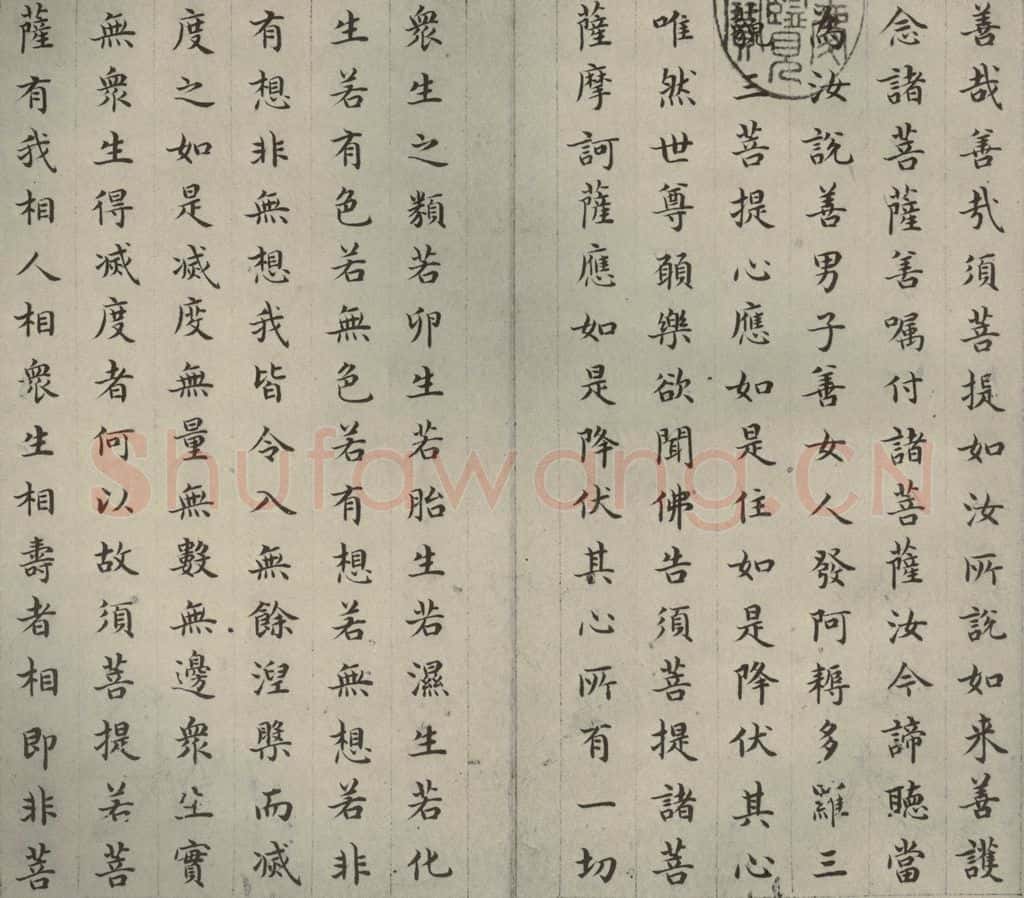 善哉善哉須菩提如汝所說如来善護
念諸菩薩善嘱付諸菩薩汝今諦聽當
為汝說善男子善女人發阿耨多羅三
藐三菩提心應如是住如是降伏其心
唯然世尊願樂欲聞佛告須菩提諸菩
薩摩訶薩應如是降伏其心所有一切
衆生之類若卵生若胎生若濕生若化
生若有色若無色若有想若無想若非
有想非無想我皆令入無餘涅槃而滅
度之如是滅度無量無數無邊衆生實
無衆生得滅度者何以故須菩提若菩
薩有我相人相衆生相壽者相即非菩
Shufawang.CN